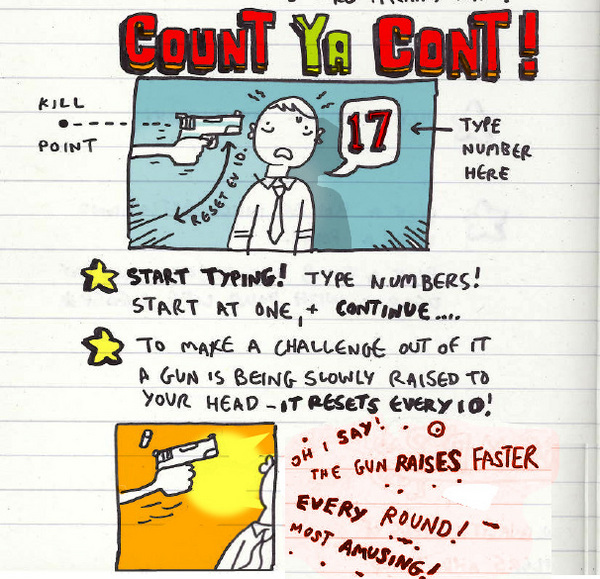 COUNT YA CONT!
KILL
POINT
RESET EV 10.
17
TYPE
NUMBER
HERE
START TYPING! TYPE NUMBERS!
START AT ONE, + CONTINUE....
TO MAKE A CHALLENGE OUT OF IT
A GUN IS BEING SLOWLY RAISED TO
YOUR HEAD - IT RESETS EVERY 10!
OH I SAY!
THE GUN RAISES FASTER
EVERY ROUND!
MOST AMUSING!